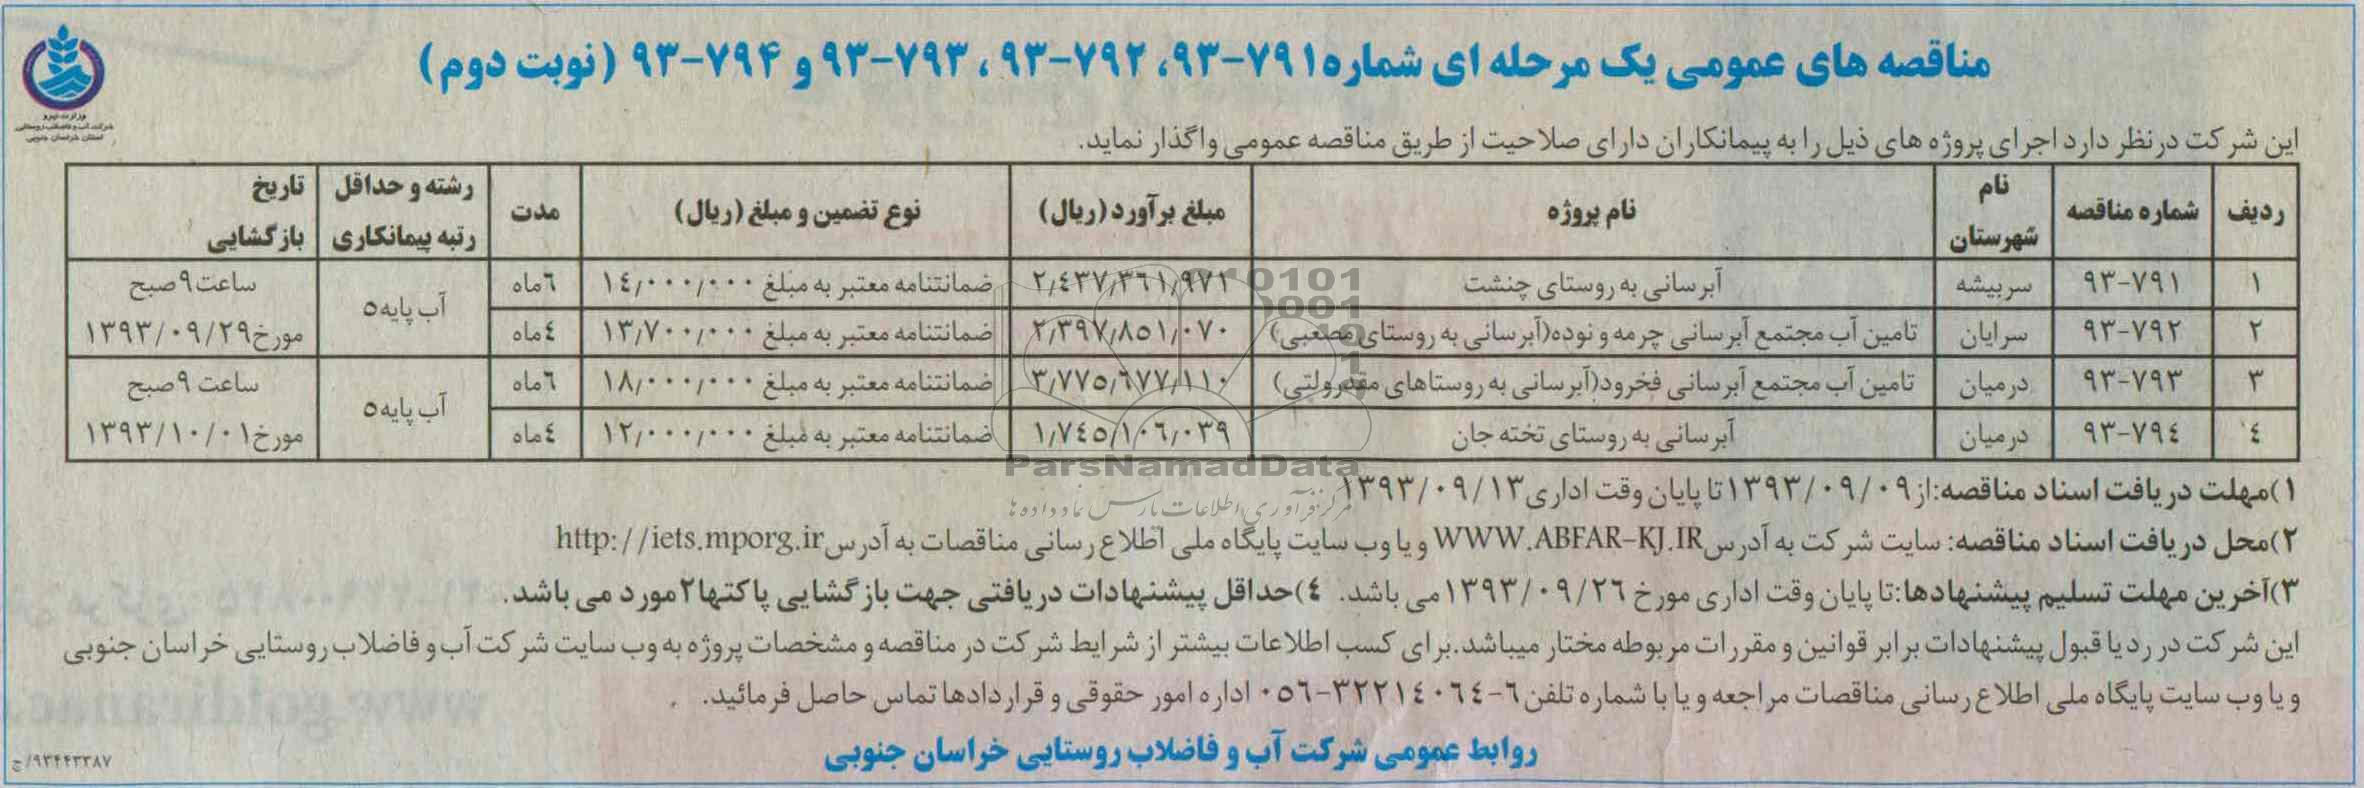 مناقصه های عمومی یک مرحله ای شماره ۷۹۱-۹۳، ۷۹۲-۹۳ ، ۷۹۳-۹۳ و ۷۹۴-۹۳ (نوبت دوم)
وزارت نیرو
شرکت آب و فاضلاب روستایی
استان خراسان جنوبی
این شرکت درنظر دارد اجرای پروژه های ذیل را به پیمانکاران دارای صلاحیت از طریق مناقصه عمومی واگذار نماید.
ردیف شماره مناقصه نام شهرستان نام پروژه مبلغ برآورد (ریال) نوع تضمین و مبلغ (ریال) مدت رشته و حداقل رتبه پیمانکاری تاریخ بازگشایی
۱ ۷۹۱-۹۳ سربیشه آبرسانی به روستای چنشت ۲,۴۳۷,۳۶۱,۹۷۲ ضمانتنامه معتبر به مبلغ ۱۴,۰۰۰,۰۰۰ ۶ماه آب پایه۵ ساعت ۹صبح مورخ۱۳۹۳/۰۹/۲۹
۲ ۷۹۲-۹۳ سرایان تامین آب مجتمع آبرسانی چرمه و نوده(آبرسانی به روستای مصعبی) ۲,۳۹۷,۸۵۱,۰۷۰ ضمانتنامه معتبر به مبلغ ۱۳,۷۰۰,۰۰۰ ۴ماه
۳ ۷۹۳-۹۳ درمیان تامین آب مجتمع آبرسانی فخرود(آبرسانی به روستاهای مقدرولتی) ۳,۷۷۵,۶۷۷,۱۱۰ ضمانتنامه معتبر به مبلغ ۱۸,۰۰۰,۰۰۰ ۶ماه آب پایه۵ ساعت ۹صبح مورخ۱۳۹۳/۱۰/۰۱
۴ ۷۹۴-۹۳ درمیان آبرسانی به روستای تخته جان ۱,۷۴۵,۱۰۶,۰۳۹ ضمانتنامه معتبر به مبلغ ۱۲,۰۰۰,۰۰۰ ۴ماه
ParsNamadData
مرکز فرآوری اطلاعات پارس نماد داده ها
۱)مهلت دریافت اسناد مناقصه:از۱۳۹۳/۰۹/۰۹تا پایان وقت اداری۱۳۹۳/۰۹/۱۳
۲)محل دریافت اسناد مناقصه: سایت شرکت به آدرس WWW.ABFAR-KJ.IR و یا وب سایت پایگاه ملی اطلاع رسانی مناقصات به آدرس http://iets.mporg.ir
۳)آخرین مهلت تسلیم پیشنهادها:تا پایان وقت اداری مورخ ۱۳۹۳/۰۹/۲۶می باشد. ۴)حداقل پیشنهادات دریافتی جهت بازگشایی پاکتها۲مورد می باشد.
این شرکت در رد یا قبول پیشنهادات برابر قوانین و مقررات مربوطه مختار میباشد.برای کسب اطلاعات بیشتر از شرایط شرکت در مناقصه و مشخصات پروژه به وب سایت شرکت آب و فاضلاب روستایی خراسان جنوبی
و یا وب سایت پایگاه ملی اطلاع رسانی مناقصات مراجعه و یا با شماره تلفن ۶-۳۲۲۱۴۰۶۴-۰۵۶ اداره امور حقوقی و قراردادها تماس حاصل فرمائید.
روابط عمومی شرکت آب و فاضلاب روستایی خراسان جنوبی
۹۳۴۴۳۳۸۷/ج